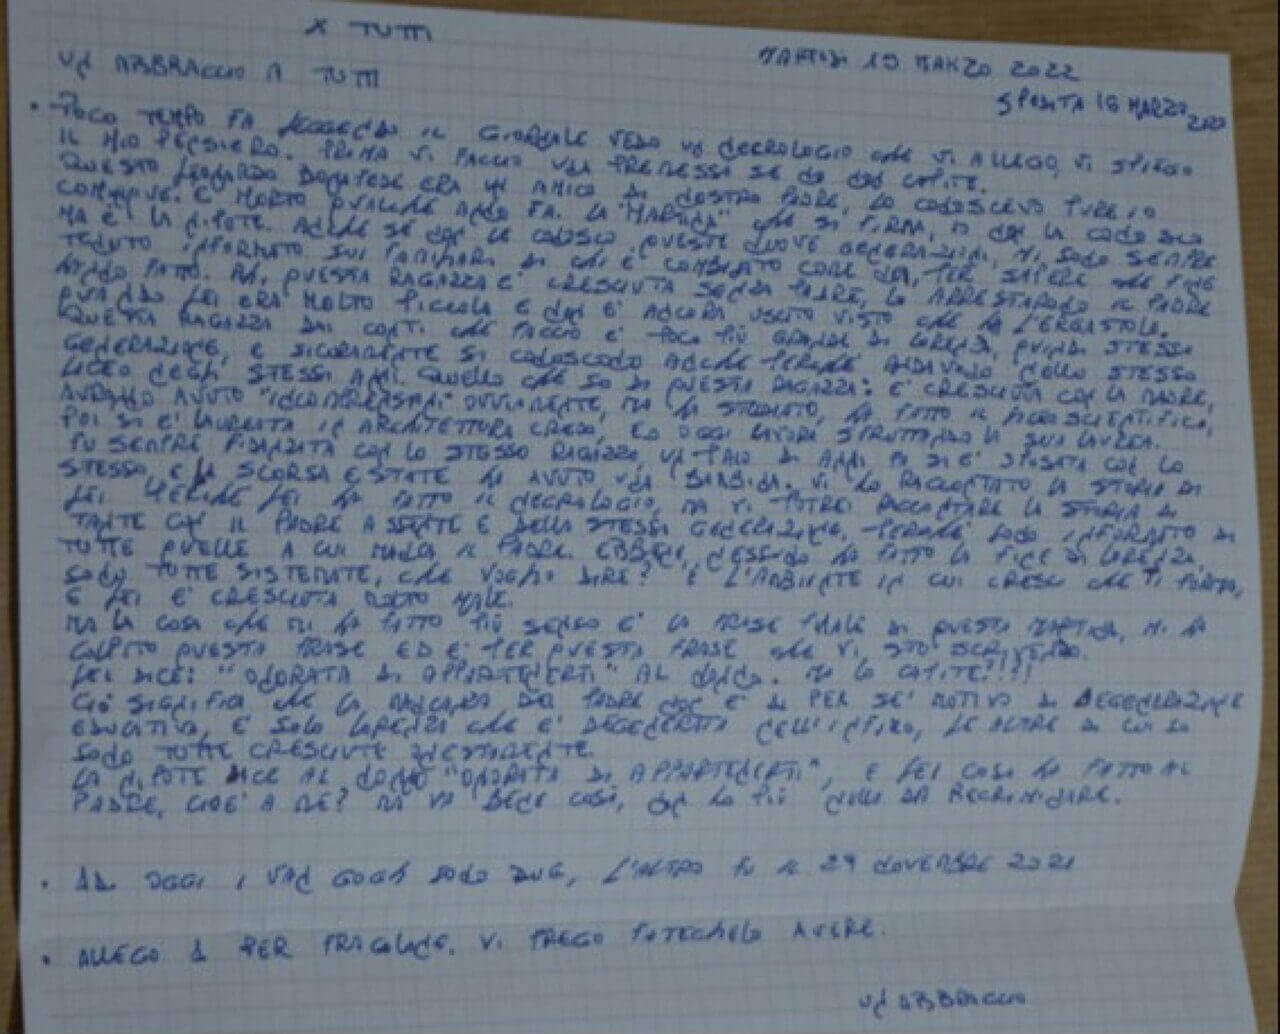 X TUTTI
MARTEDI 15 MARZO 2022
UN ABBRACCIO A TUTTI
SPEDITA 16 MARZO 2022
• POCO TEMPO FA LEGGENDO IL GIORNALE VEDO UN NECROLOGIO CHE VI ALLEGO, VI SPIEGO
IL MIO PENSIERO. PRIMA VI FACCIO UNA PREMESSA SE NO NON CAPITE.
QUESTO LEONARDO BONAFEDE ERA UN AMICO DI NOSTRO PADRE, LO CONOSCEVO PURE IO
COMUNQUE. È MORTO QUALCHE ANNO FA. LA "MARTINA" CHE SI FIRMA, IO NON LA CONOSCO
MA È LA NIPOTE. ANCHE SE NON LE CONOSCO QUESTE NUOVE GENERAZIONI, MI SONO SEMPRE
TENUTO INFORMATO SUI FAMILIARI DI CHI È COMBINATO COME NOI, PER SAPERE CHE FINE
HANNO FATTO. QUESTA RAGAZZA E' CRESCIUTA SENZA PADRE, LO ARRESTARONO IL PADRE
QUANDO LEI ERA MOLTO PICCOLA E NON E' ANCORA USCITO VISTO CHE HA L'ERGASTOLO.
QUESTA RAGAZZA DAI CONTI CHE FACCIO E' POCO PIÙ GRANDE DI LORENZA, QUINDI STESSA
GENERAZIONE, E SICURAMENTE SI CONOSCONO ANCHE PERCHÉ ANDAVANO NELLO STESSO
LICEO NEGLI STESSI ANNI. QUELLO CHE SO DI QUESTA RAGAZZA: E' CRESCIUTA CON LA MADRE,
AVRANNO AVUTO "INCOMPRENSIONI" OVVIAMENTE, MA HA STUDIATO, HA FATTO IL LICEO SCIENTIFICO,
POI SI E' LAUREATA IN ARCHITETTURA CREDO, ED OGGI LAVORA SFRUTTANDO LA SUA LAUREA.
FU SEMPRE FIDANZATA CON LO STESSO RAGAZZO, UN PAIO DI ANNI FA SI E' SPOSATA CON LO
STESSO, E LA SCORSA ESTATE HA AVUTO UNA BAMBINA. VI HO RACCONTATO LA STORIA DI
LEI PERCHÉ LEI HA FATTO IL NECROLOGIO, MA VI POTREI RACCONTARE LA STORIA DI
TANTE CON IL PADRE ASSENTE E DELLA STESSA GENERAZIONE. PERCHÉ SONO INFORMATO DI
TUTTE QUELLE A CUI MANCA IL PADRE. EBBENE, NESSUNO HA FATTO LA FINE DI LORENZA,
SONO TUTTE SISTEMATE, CHE VOGLIO DIRE? È L'AMBIENTE IN CUI CRESCI CHE TI FORMA,
E LEI E' CRESCIUTA MOLTO MALE.
MA LA COSA CHE MI HA FATTO PIÙ SENSO E' LA FRASE FINALE DI QUESTA MARTINA, MI HA
COLPITO QUESTA FRASE ED E' PER QUESTA FRASE CHE VI STO SCRIVENDO.
LEI DICE: "ONORATA DI APPARTENERTI" AL NONNO. MA LO CAPITE?!!!
CIÒ SIGNIFICA CHE LA MANCANZA DEL PADRE NON È DI PER SE' MOTIVO DI DEGENERAZIONE
EDUCATIVA, E' SOLO LORENZA CHE E' DEGENERATA NELL'INFIMO, LE ALTRE DI CUI SO
SONO TUTTE CRESCIUTE ONESTAMENTE.
LA NIPOTE DICE AL NONNO "ONORATA DI APPARTENERTI", E LEI COSA HA FATTO AL
PADRE, CIOÈ A ME? MA VA BENE COSÌ, NON HO PIÙ NULLA DA RECRIMINARE.
• AD OGGI I VAN GOGH SONO DUE, L'ALTRO FU IL 29 NOVEMBRE 2021
• ALLEGO 1 PER FRAGOLONE. VI PREGO FATECHELO AVERE.
UN ABBRACCIO